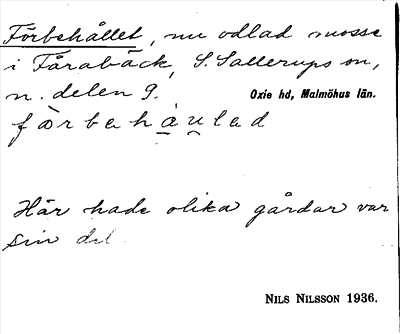 Förbehållet, nu odlad mosse
i Fårabäck, S. Sallerups sn,
n. delen 9. Oxie hd, Malmöhus län.
färbehau̯led
Här hade olika gårdar var
sin del
NILS NILSSON 1936.